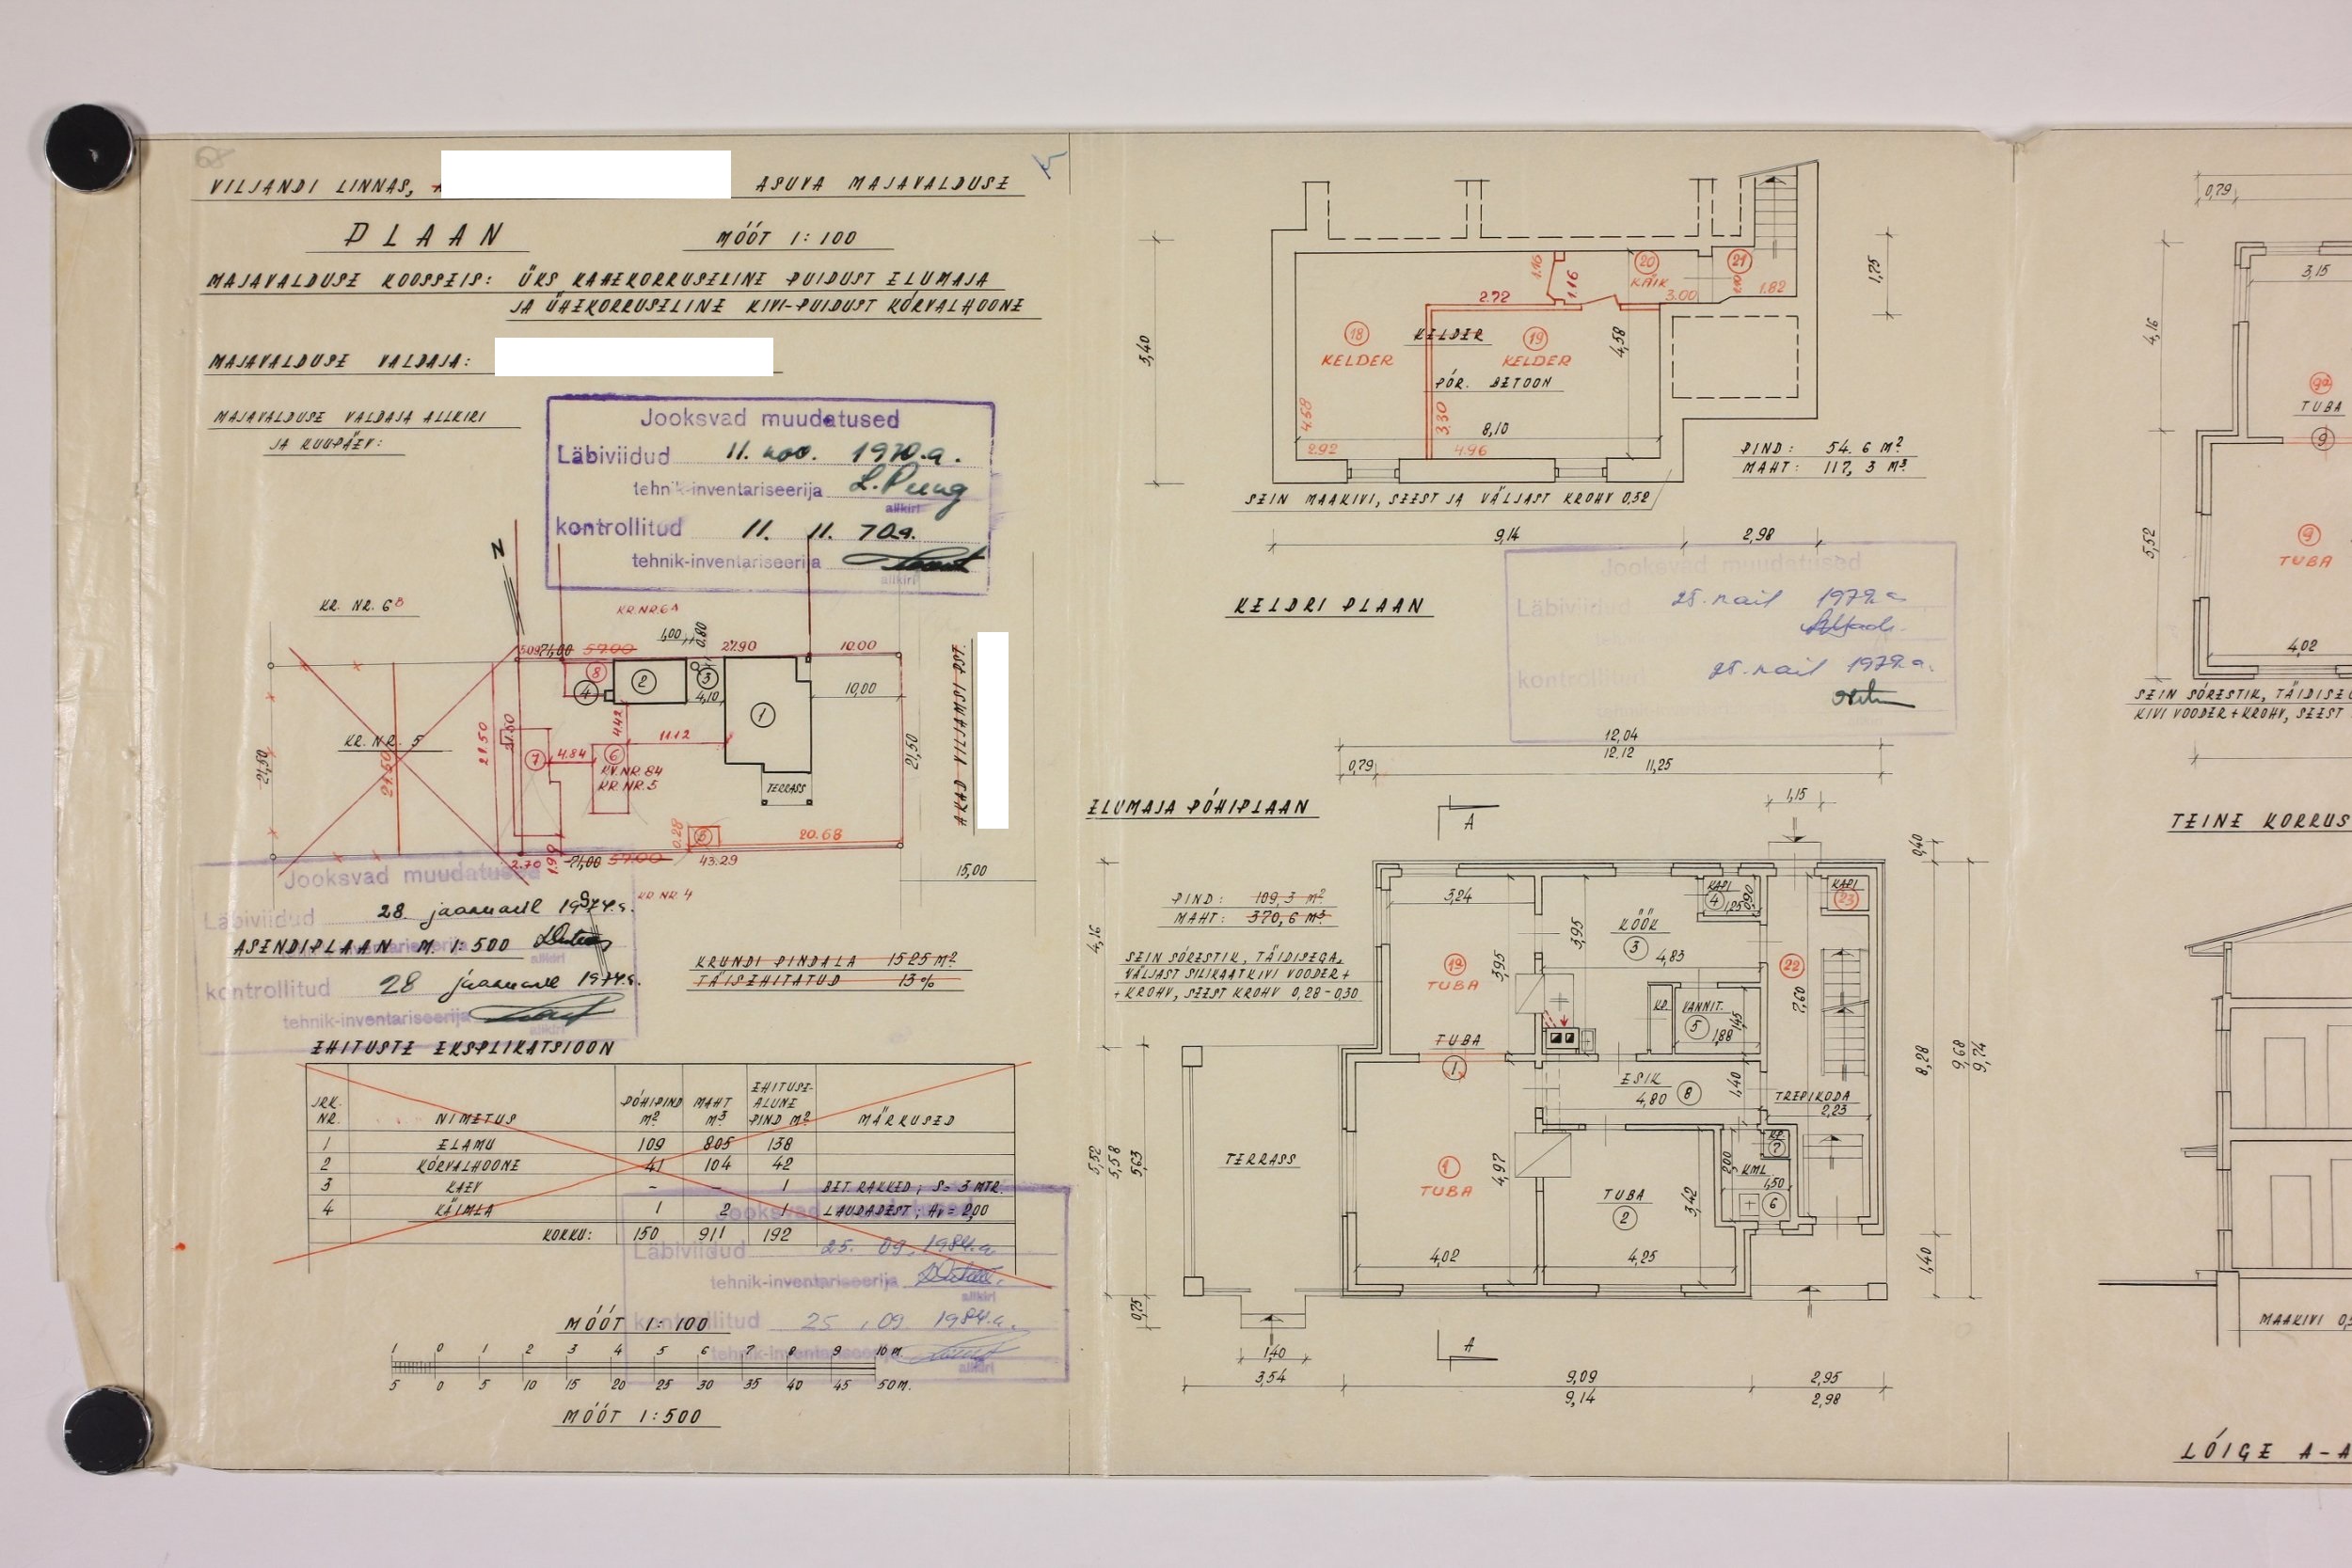 VILJANDI LINNAS,
ASUVA MAJAVALDUSE
PLAAN
MÕÕT 1:100
MAJAVALDUSE KOOSSEIS: ÜKS KAHEKORRUSELINE PUIDUST ELUMAJA
JA ÜHEKORRUSELINE KIVI-PUIDUST KÕRVALHOONE
MAJAVALDUSE VALDAJA:
MAJAVALDUSE VALDAJA ALLKIRI
JA KUUPÄEV:
Jooksvad muudatused
Läbiviidud 11. nov. 1970.a.
tehnik-inventariseerija
allkiri
kontrollitud 11. 11. 70.a.
tehnik-inventariseerija
allkiri
N
KR. NR. 6B
KR.NR.6A
1,00
0.80
5.09
71,00
57.00
27.90
10.00
8
4
2
3
4,10
1
10,00
21,50
KR. NR. 5
21.50
21.50
21.50
7
4.84
4.42
6
11.12
KV.NR.84
KR.NR.5
TERRASS
21,50
0.28
5
20.68
2.70
1.99
71,00
57.00
43.29
15,00
KR NR 4
Jooksvad muudatused
Läbiviidud 28. jaanuaril 1974.a.
ASENDIPLAAN M. 1:500
tehnik-inventariseerija
allkiri
kontrollitud 28 jaanuaril 1974.a.
tehnik-inventariseerija
allkiri
KRUNDI PINDALA 1525 M²
TÄISEHITATUD 13%
EHITUSTE EKSPLIKATSIOON
JRK. NR. NIMETUS PÕHIPIND M² MAHT M³ EHITUSE-ALUNE PIND M² MÄRKUSED
1 ELAMU 109 805 138
2 KÕRVALHOONE 41 104 42
3 KAEV - - 1 BET. RAKKED; S= 3 MTR.
4 KÄIMLA 1 2 1 LAUDADEST; Hv= 2,00
KOKKU: 150 911 192
Jooksvad muudatused
Läbiviidud 25. 09. 1984.a.
tehnik-inventariseerija
allkiri
kontrollitud 25. 09. 1984.a.
tehnik-inventariseerija
allkiri
MÕÕT 1:100
1 0 1 2 3 4 5 6 7 8 9 10 M.
5 0 5 10 15 20 25 30 35 40 45 50 M.
MÕÕT 1:500
5,40
1.16
1.16
20
KÄIK
3.00
21
1.82
1,75
2.72
18
KELDER
KELDER
19
KELDER
4,58
PÕR. BETOON
4.58
3.30
8,10
2.92
4.96
PIND: 54.6 M²
MAHT: 117,3 M³
SEIN MAAKIVI, SEEST JA VÄLJAST KROHV 0,52
9,14
2,98
KELDRI PLAAN
Jooksvad muudatused
Läbiviidud 25. mail 1979.a
kontrollitud 25. mail 1979.a.
12,04
12.12
0,79
11,25
ELUMAJA PÕHIPLAAN
A
1,15
0,40
PIND: 109,3 M²
MAHT: 370,6 M³
SEIN SÕRESTIK, TÄIDISEGA,
VÄLJAST SILIKAATKIVI VOODER +
+ KROHV, SEEST KROHV 0,28-0,30
4,16
3,24
1a
TUBA
3,95
3,95
KÖÖK
3
4,83
KAPP
4
1,25
0,90
KAPP
23
22
7,60
KP.
VANNIT.
5
1,88
1,45
TUBA
1
ESIK
4,80
8
1,40
TREPIKODA
2,23
8,28
9,68
9,74
5,52
5,58
5,63
TERRASS
1
TUBA
4,97
TUBA
2
3,42
KP.
7
2,00
KML.
1,50
6
4,02
4,25
1,40
0,75
1,40
3,54
A
9,09
9,14
2,95
2,98
0,79
3,15
4,16
9a
TUBA
9
9
TUBA
5,52
4,02
SEIN SÕRESTIK, TÄIDISE
KIVI VOODER + KROHV, SEEST
TEINE KORRUS
MAAKIVI 0,5
LÕIGE A-A